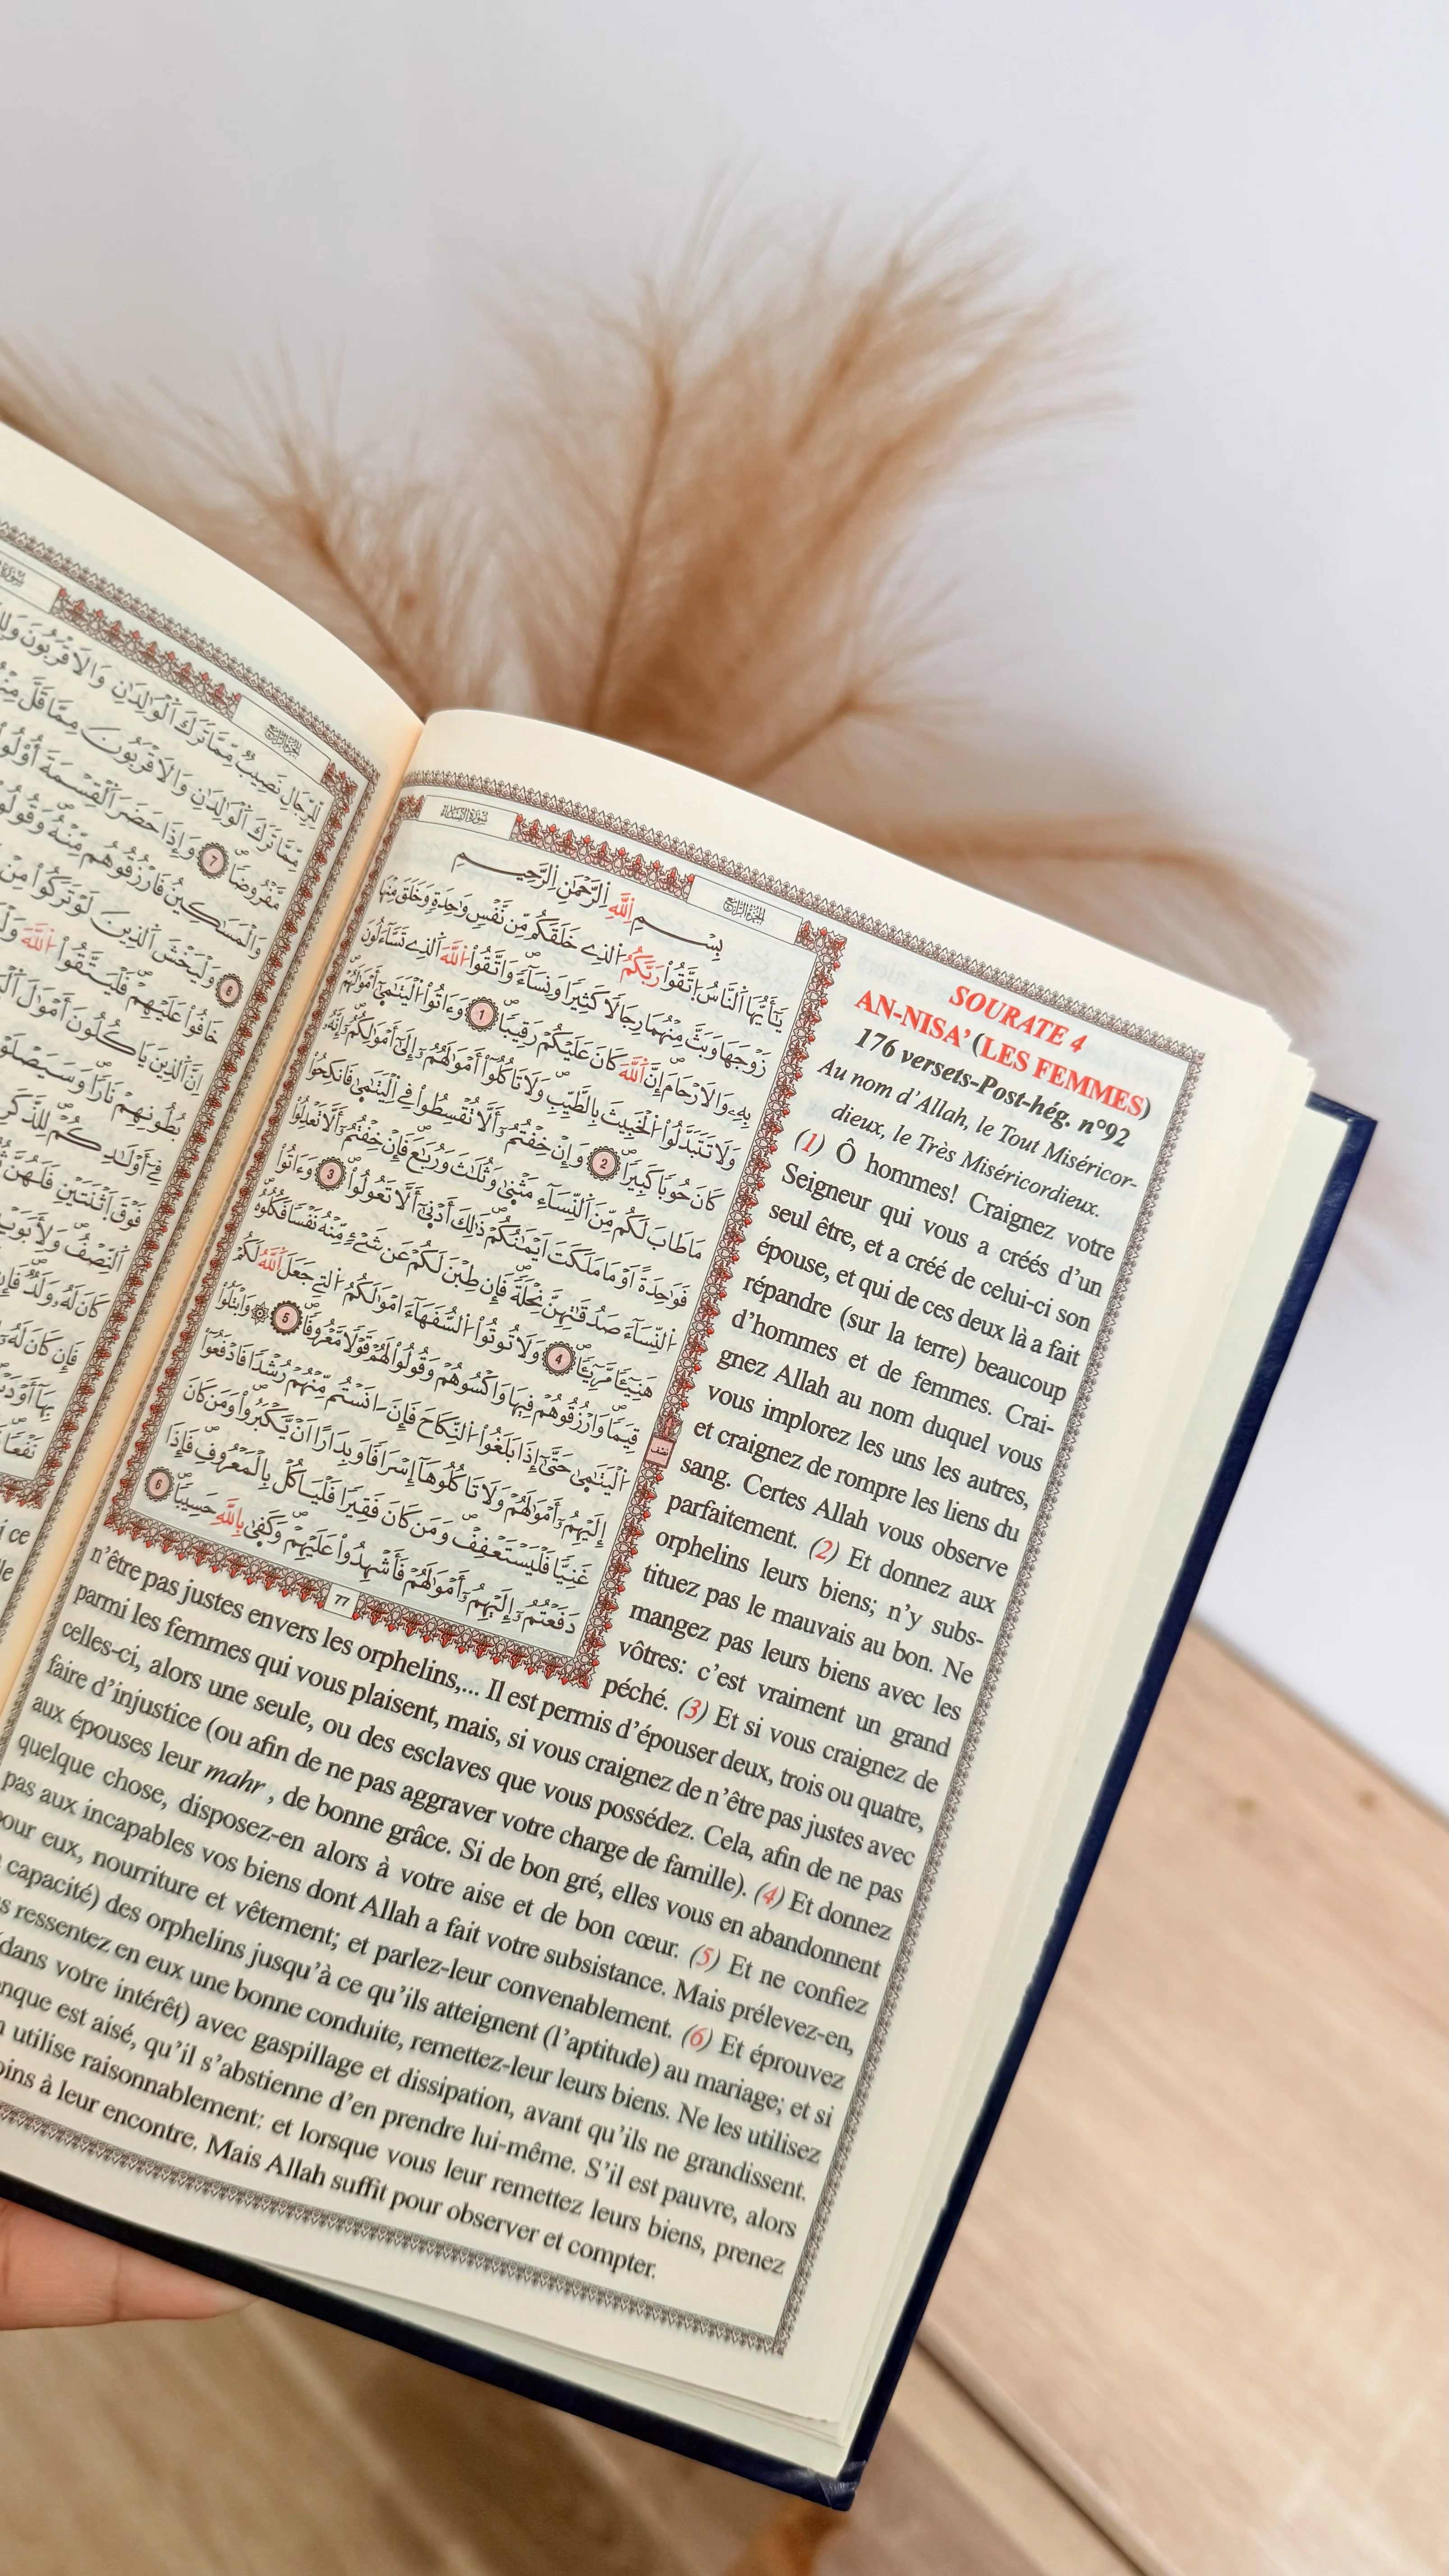 سُورَةُ النِّسَاءِ
الجزء الرابع
بِسْمِ اِللَّهِ اِلرَّحْمَٰنِ اِلرَّحِيمِ
يَٰٓأَيُّهَا اَلنَّاسُ اُتَّقُواْ رَبَّكُمُ اُلذِے خَلَقَكُم مِّن نَّفْسٖ وَٰحِدَةٖ وَخَلَقَ مِنْهَا
زَوْجَهَا وَبَثَّ مِنْهُمَا رِجَالاٗ كَثِيراٗ وَنِسَآءٗ وَاتَّقُواْ اُللَّهَ اَلذِے تَسَّآءَلُونَ
بِهِۦ وَالَارْحَامَ إِنَّ اَللَّهَ كَانَ عَلَيْكُمْ رَقِيباٗ 1 وَءَاتُواْ اُلْيَتَٰمَىٰٓ أَمْوَٰلَهُمْ
وَلَا تَتَبَدَّلُواْ اُلْخَبِيثَ بِالطَّيِّبِ وَلَا تَاكُلُوٓاْ أَمْوَٰلَهُمُۥٓ إِلَىٰٓ أَمْوَٰلِكُمُۥٓ إِنَّهُۥ
كَانَ حُوباٗ كَبِيراٗ 2 وَإِنْ خِفْتُمُۥٓ أَلَّا تُقْسِطُواْ فِے اِلْيَتَٰمَىٰ فَانكِحُواْ
مَا طَابَ لَكُم مِّنَ اَلنِّسَآءِ مَثْنَىٰ وَثُلَٰثَ وَرُبَٰعَ فَإِنْ خِفْتُمُۥٓ أَلَّا تَعْدِلُواْ
فَوَٰحِدَةً اَوْ مَا مَلَكَتَ اَيْمَٰنُكُمْ ذَٰلِكَ أَدْنَىٰٓ أَلَّا تَعُولُواْ 3 وَءَاتُواْ
اُلنِّسَآءَ صَدُقَٰتِهِنَّ نِحْلَةٗ فَإِن طِبْنَ لَكُمْ عَن شَےْءٖ مِّنْهُ نَفْساٗ فَكُلُوهُ
هَنِيٓـٔاٗ مَّرِيٓـٔاٗ 4 وَلَا تُوتُواْ اُلسُّفَهَآءَ امْوَٰلَكُمُ اُلتِے جَعَلَ اَللَّهُ لَكُمْ
قِيَماٗ وَارْزُقُوهُمْ فِيهَا وَاكْسُوهُمْ وَقُولُواْ لَهُمْ قَوْلاٗ مَّعْرُوفاٗ 5 وَابْتَلُواْ
اُلْيَتَٰمَىٰ حَتَّىٰٓ إِذَا بَلَغُواْ اُلنِّكَاحَ فَإِنَ اٰنَسْتُم مِّنْهُمْ رُشْداٗ فَادْفَعُوٓاْ
إِلَيْهِمُۥٓ أَمْوَٰلَهُمْ وَلَا تَاكُلُوهَآ إِسْرَافاٗ وَبِدَاراً اَنْ يَّكْبَرُواْ وَمَن كَانَ
غَنِيّاٗ فَلْيَسْتَعْفِفْ وَمَن كَانَ فَقِيراٗ فَلْيَاكُلْ بِالْمَعْرُوفِ فَإِذَا
دَفَعْتُمُۥٓ إِلَيْهِمُۥٓ أَمْوَٰلَهُمْ فَأَشْهِدُواْ عَلَيْهِمْ وَكَفَىٰ بِاللَّهِ حَسِيباٗ 6
نصف
77
SOURATE 4
AN-NISA’ (LES FEMMES)
176 versets-Post-hég. n°92
Au nom d’Allah, le Tout Miséricor-
dieux, le Très Miséricordieux.
(1) Ô hommes! Craignez votre
Seigneur qui vous a créés d’un
seul être, et a créé de celui-ci son
épouse, et qui de ces deux là a fait
répandre (sur la terre) beaucoup
d’hommes et de femmes. Crai-
gnez Allah au nom duquel vous
vous implorez les uns les autres,
et craignez de rompre les liens du
sang. Certes Allah vous observe
parfaitement. (2) Et donnez aux
orphelins leurs biens; n’y subs-
tituez pas le mauvais au bon. Ne
mangez pas leurs biens avec les
vôtres: c’est vraiment un grand
péché. (3) Et si vous craignez de
n’être pas justes envers les orphelins,... Il est permis d’épouser deux, trois ou quatre,
parmi les femmes qui vous plaisent, mais, si vous craignez de n’être pas justes avec
celles-ci, alors une seule, ou des esclaves que vous possédez. Cela, afin de ne pas
faire d’injustice (ou afin de ne pas aggraver votre charge de famille). (4) Et donnez
aux épouses leur mahr , de bonne grâce. Si de bon gré, elles vous en abandonnent
quelque chose, disposez-en alors à votre aise et de bon cœur. (5) Et ne confiez
pas aux incapables vos biens dont Allah a fait votre subsistance. Mais prélevez-en,
pour eux, nourriture et vêtement; et parlez-leur convenablement. (6) Et éprouvez
capacité) des orphelins jusqu’à ce qu’ils atteignent (l’aptitude) au mariage; et si
ressentez en eux une bonne conduite, remettez-leur leurs biens. Ne les utilisez
(dans votre intérêt) avec gaspillage et dissipation, avant qu’ils ne grandissent.
est aisé, qu’il s’abstienne d’en prendre lui-même. S’il est pauvre, alors
utilise raisonnablement: et lorsque vous leur remettez leurs biens, prenez
à leur encontre. Mais Allah suffit pour observer et compter.
الجزء الرابع
لِّلرِّجَالِ نَصِيبٞ مِّمَّا تَرَكَ اَلْوَٰلِدَٰنِ وَالَاقْرَبُونَ
مِمَّا تَرَكَ اَلْوَٰلِدَٰنِ وَالَاقْرَبُونَ مِمَّا قَلَّ
مَّفْرُوضاٗ 7 وَإِذَا حَضَرَ اَلْقِسْمَةَ أُوْلُواْ
وَالْمَسَٰكِينُ فَارْزُقُوهُم مِّنْهُ وَقُولُواْ
8 وَلْيَخْشَ اَلذِينَ لَوْ تَرَكُواْ مِنْ
خَافُواْ عَلَيْهِمْ فَلْيَتَّقُواْ اُللَّهَ
إِنَّ اَلذِينَ يَاكُلُونَ أَمْوَٰلَ
بُطُونِهِمْ نَاراٗ وَسَيَصْلَوْنَ
فِےٓ أَوْلَٰدِكُمْ لِلذَّكَرِ
فَوْقَ اَثْنَتَيْنِ فَلَهُنَّ
اَلنِّصْفُ وَلِأَبَوَيْهِ
كَانَ لَهُۥ وَلَدٞ فَإِن
فَإِن كَانَ لَهُۥٓ
بِهَآ أَوْ دَيْنٍ
نَفْعاٗ
ce